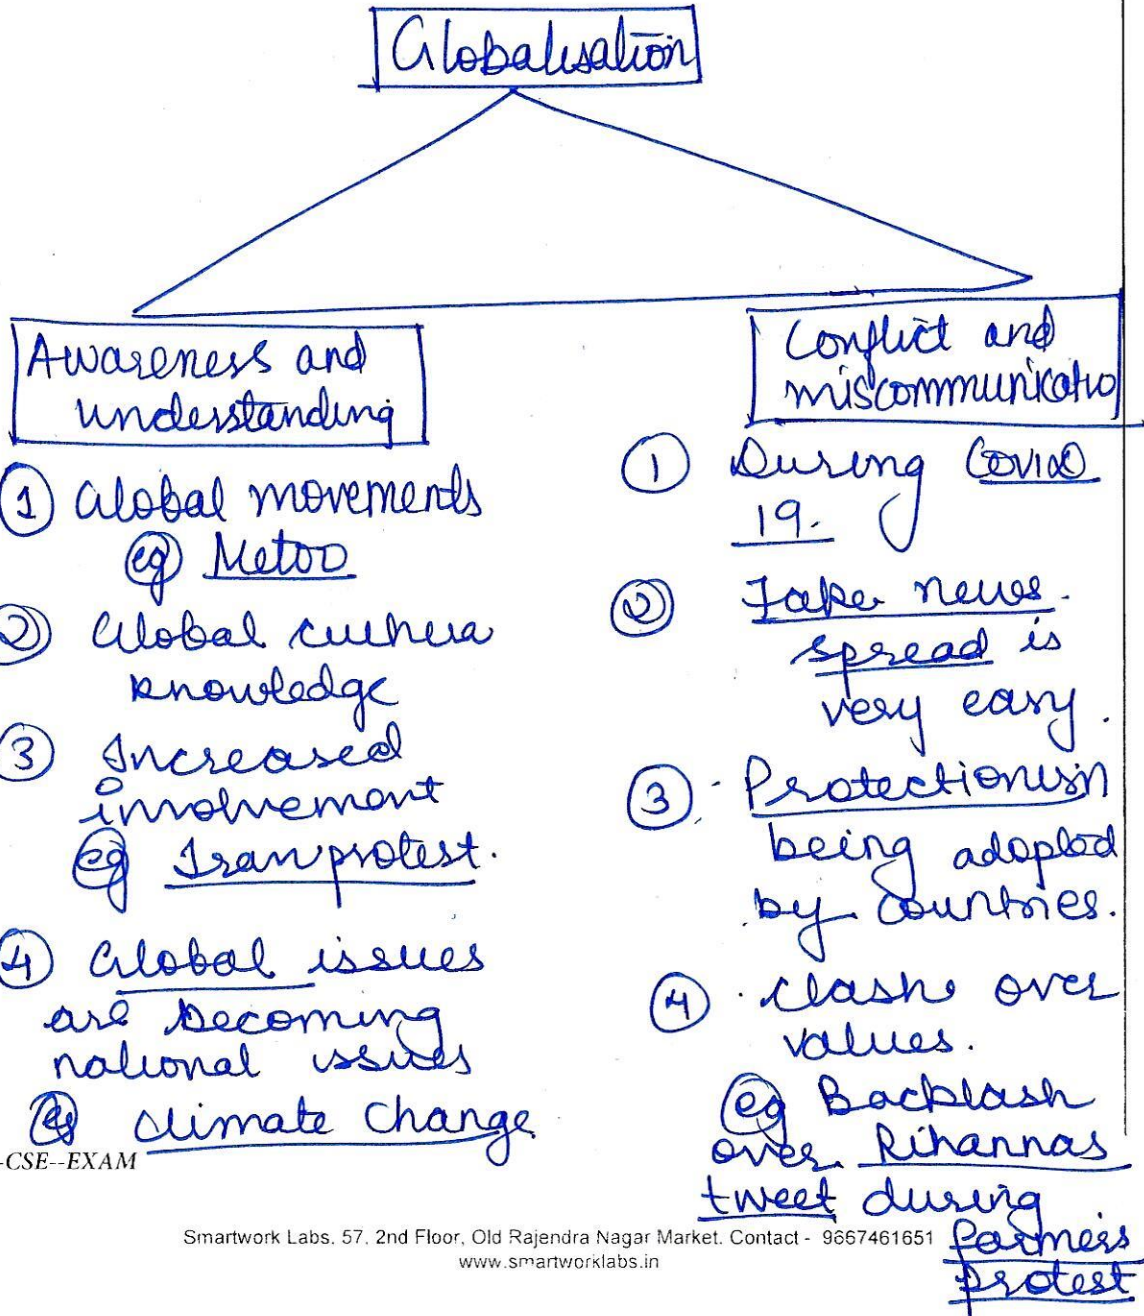 Globalisation
Awareness and
understanding
① Global movements
eg Metoo
② Global cultura
knowledge
③ Increased
involvement
eg Iran protest.
④ Global issues
are becoming
national issues
eg climate change
-CSE--EXAM
Conflict and
miscommunicatio
① During Covid
19.
② Fake news.
spread is
very easy.
③ Protectionism
being adopted
by countries.
④ clash over
values.
eg Backlash
over Rihannas
tweet during
farmers
protest
Smartwork Labs, 57, 2nd Floor, Old Rajendra Nagar Market. Contact - 9667461651
www.smartworklabs.in